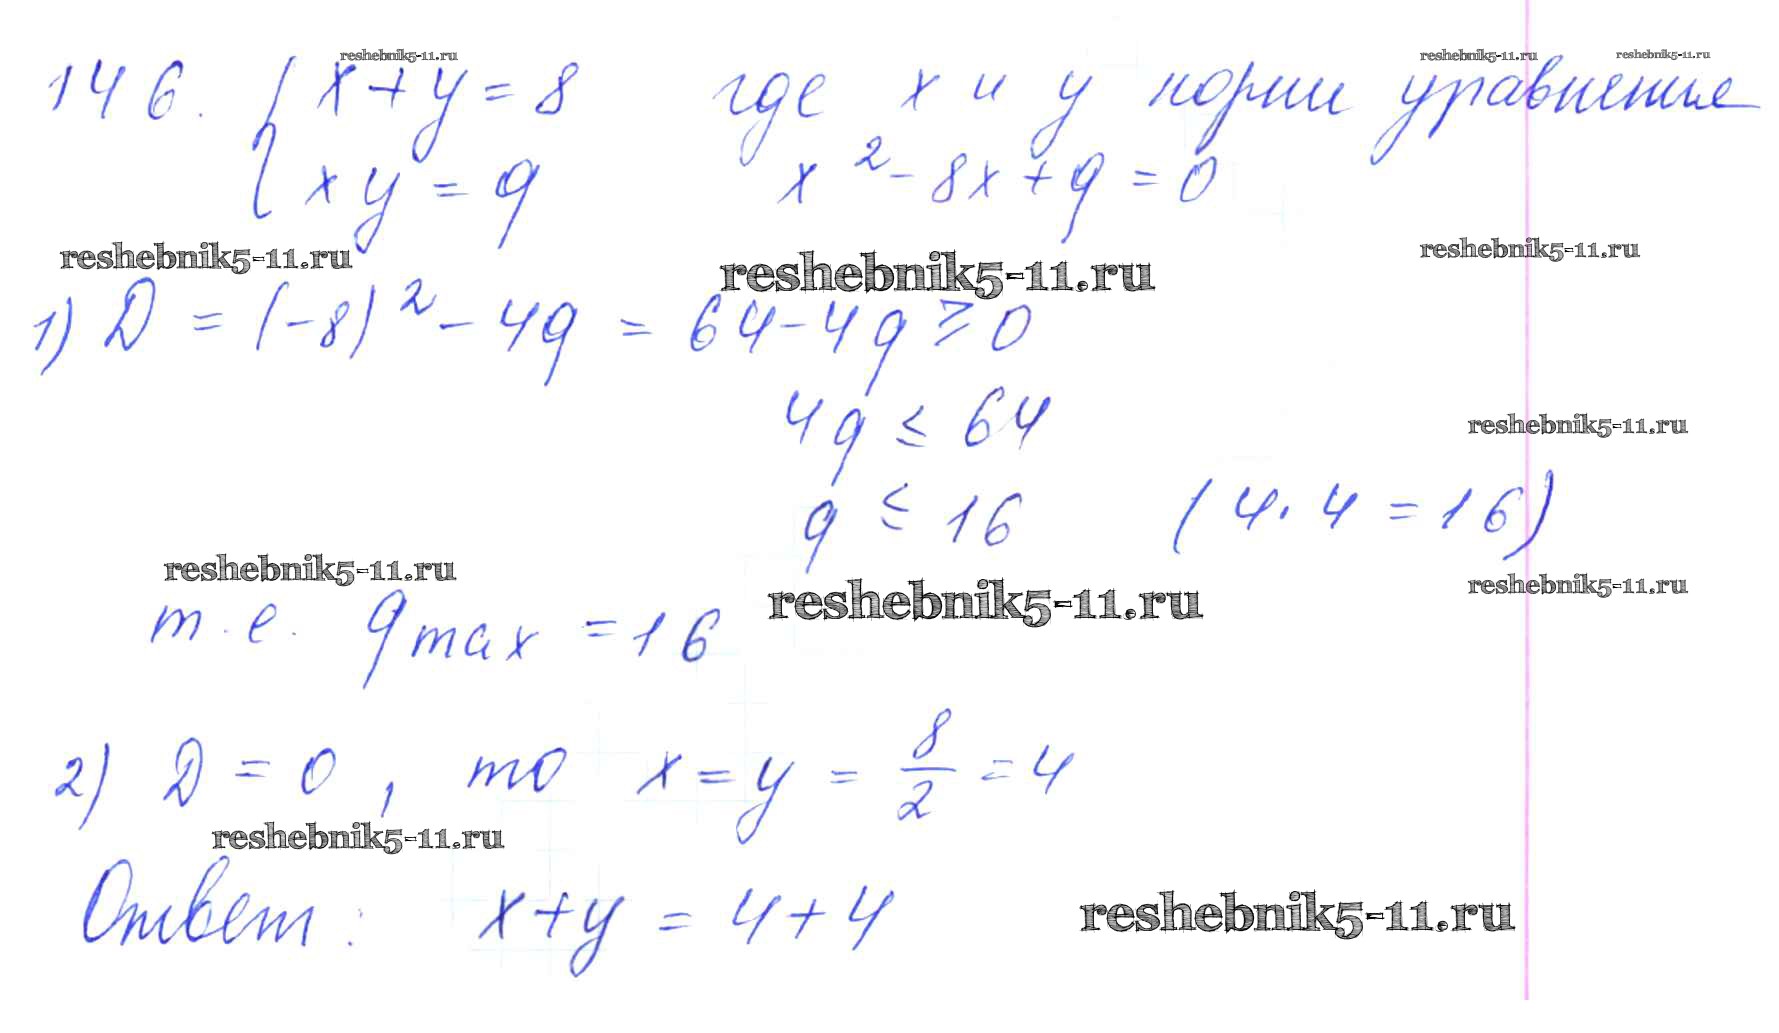 reshebnik5-11.ru reshebnik5-11.ru reshebnik5-11.ru
146. { x + y = 8 где x и y корни уравнение
xy = q x² - 8x + q = 0
reshebnik5-11.ru reshebnik5-11.ru reshebnik5-11.ru
1) D = (-8)² - 4q = 64 - 4q ≥ 0
4q ≤ 64
reshebnik5-11.ru
q ≤ 16 (4·4 = 16)
reshebnik5-11.ru reshebnik5-11.ru reshebnik5-11.ru
т.е. q max = 16
2) D = 0, то x = y = 8/2 = 4
reshebnik5-11.ru
Ответ: x + y = 4 + 4
reshebnik5-11.ru